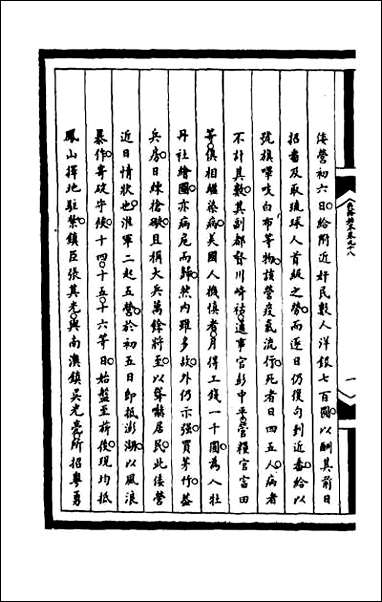 倭營初六日給附近奸民數人洋銀七百圓以酬其前日
招番及取琉球人首級之勞而逐日仍復勾到近番給以
號旗嗶吱白布等物該營疫氣流行死者日四五人病者
不計其數其副都督川崎祐通事官彭中平管糧官富田
等俱相繼染病美國人機慎者月得工錢一千圓為入牡
丹社繪圖亦病危而歸然內雖多故外仍示強買茅竹葢
兵房日練槍礮且稱大兵萬餘將至以聳嚇居民此倭營
近日情狀也淮軍二起五營於初五日即抵澎湖以風浪
暴作寄碇守候十四十五十六等日始盤至旂後現均抵
鳳山擇地駐紮鎮臣張其光與南澳鎮吳光亮所招粵勇
一